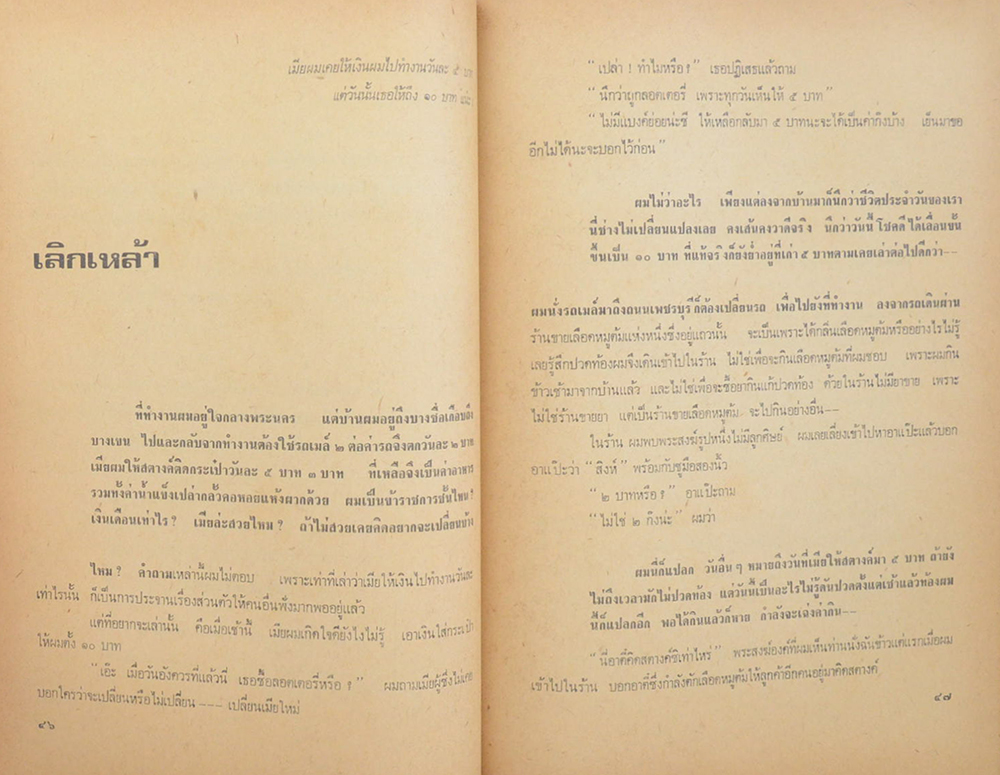 เมียผมเคยให้เงินผมไปทำงานวันละ ๕ บาท
แต่วันนั้นเธอให้ถึง ๑๐ บาท
เลิกเหล้า
ที่ทำงานผมอยู่ใจกลางพระนคร แต่บ้านผมอยู่ถึงบางซื่อเกือบถึง
บางเขน ไปและกลับจากทำงานต้องใช้รถเมล์ ๒ ต่อค่ารถจึงตกวันละ ๒ บาท
เมียผมให้สตางค์ติดกระเป๋าวันละ ๕ บาท ๓ บาท ที่เหลือจึงเป็นค่าอาหาร
รวมทั้งค่าน้ำแข็งเปล่ากลั้วคอหอยแห้งผากด้วย ผมเป็นข้าราชการชั้นไหน?
เงินเดือนเท่าไร? เมียล่ะสวยไหม? ถ้าไม่สวยเคยคิดอยากจะเปลี่ยนบ้าง
ไหม? คำถามเหล่านี้ผมไม่ตอบ เพราะเท่าที่เล่าว่าเมียให้เงินไปทำงานวันละ
เท่าไรนั้น ก็เป็นการประจานเรื่องส่วนตัวให้คนอื่นฟังมากพออยู่แล้ว
แต่ที่อยากจะเล่านั้น คือเมื่อเช้านี้ เมียผมเกิดใจดียังไงไม่รู้ เอาเงินใส่กระเป๋า
ให้ผมตั้ง ๑๐ บาท
“เอ๊ะ เมื่อวันอังคารที่แล้วนี่ เธอซื้อลอตเตอรี่หรือ?” ผมถามเมียผู้ซึ่งไม่เคย
บอกใครว่าจะเปลี่ยนหรือไม่เปลี่ยน --- เปลี่ยนเมียใหม่
๔๖
“เปล่า! ทำไมหรือ?” เธอปฏิเสธแล้วถาม
“นึกว่าถูกลอตเตอรี่ เพราะทุกวันเห็นให้ ๕ บาท”
“ไม่มีแบงค์ย่อยน่ะซี ให้เหลือกลับมา ๕ บาทนะจะได้เป็นค่ากิ่งบ้าง เย็นมาขอ
อีกไม่ได้นะจะบอกไว้ก่อน”
ผมไม่ว่าอะไร เพียงแต่ลงจากบ้านมาก็นึกว่าชีวิตประจำวันของเรา
นี่ช่างไม่เปลี่ยนแปลงเลย คงเส้นคงวาดีจริง นึกว่าวันนี้โชคดีได้เลื่อนขั้น
ขึ้นเป็น ๑๐ บาท ที่แท้จริงก็ยังย่ำอยู่ที่เก่า ๕ บาทตามเคยเล่าต่อไปดีกว่า--
ผมนั่งรถเมล์มาถึงถนนเพชรบุรีก็ต้องเปลี่ยนรถ เพื่อไปยังที่ทำงาน ลงจากรถเดินผ่าน
ร้านขายเลือดหมูต้มแห่งหนึ่งซึ่งอยู่แถวนั้น จะเป็นเพราะได้กลิ่นเลือดหมูต้มหรืออย่างไรไม่รู้
เลยรู้สึกปวดท้องผมจึงเดินเข้าไปในร้าน ไม่ใช่เพื่อจะกินเลือดหมูต้มที่ผมชอบ เพราะผมกิน
ข้าวเช้ามาจากบ้านแล้ว และไม่ใช่เพื่อจะซื้อยากินแก้ปวดท้อง ด้วยในร้านไม่มียาขาย เพราะ
ไม่ใช่ร้านขายยา แต่เป็นร้านขายเลือดหมูต้ม จะไปกินอย่างอื่น--
ในร้าน ผมพบพระสงฆ์รูปหนึ่งไม่มีลูกศิษย์ ผมเลยเลี่ยงเข้าไปหาอาแป๊ะแล้วบอก
อาแป๊ะว่า “สิงห์” พร้อมกับชูมือสองนิ้ว
“๒ บาทหรือ?” อาแป๊ะถาม
“ไม่ใช่ ๒ กิ่งน่ะ” ผมว่า
ผมนี่ก็แปลก วันอื่น ๆ หมายถึงวันที่เมียให้สตางค์มา ๕ บาท ถ้ายัง
ไม่ถึงเวลามักไม่ปวดท้อง แต่วันนี้เป็นอะไรไม่รู้ดันปวดตั้งแต่เช้าแล้วท้องผม
นี่ก็แปลกอีก พอได้กินแล้วก็หาย กำลังจะเจ๋งค่ากิน--
“นี่อาคี่คิดสตางค์ซิเท่าไหร่” พระสงฆ์องค์ที่ผมเห็นท่านนั่งฉันข้าวแต่แรกเมื่อผม
เข้าไปในร้าน บอกอาคี่ซึ่งกำลังตักเลือดหมูต้มให้ลูกค้าอีกคนอยู่มาคิดสตางค์
๔๗